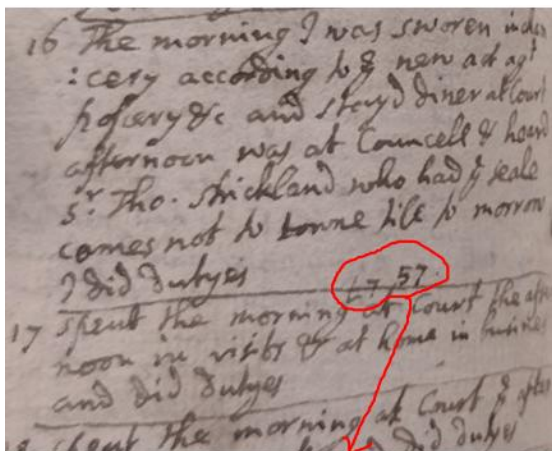 16 The morning I was sworen in chan
:cery according to ye new act agt
popery &c and stayd diner at Court
afternoon was at Councell & heard
Sr. Tho. Strickland who had ye seale
comes not to towne till to morrow
I did dutyes 17,57.
17 spent the morning at Court the after
noon in visits & at home in busines
and did dutyes
18 spent the morning at Court & after
did dutyes